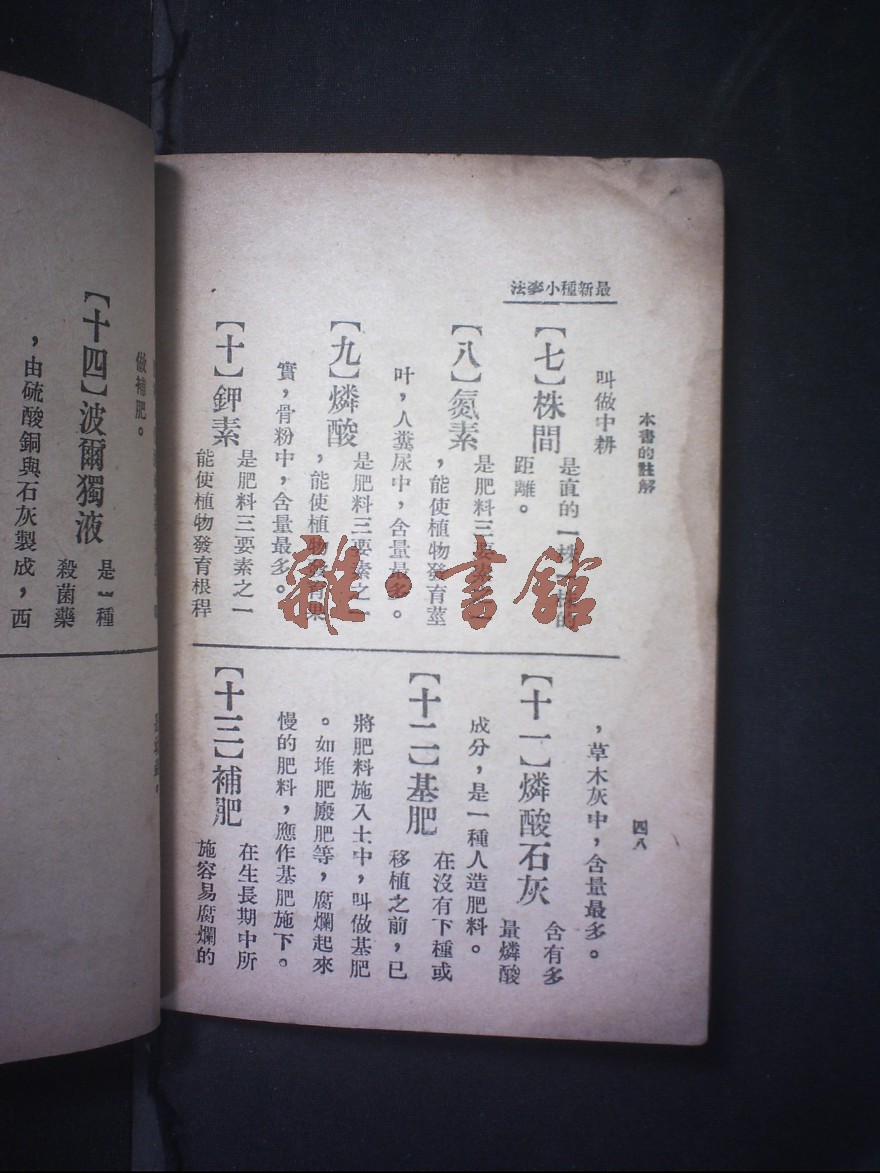 最新種小麥法
本書的註解
四八
叫做中耕
【七】株間
是直的一株一株的
距離。
【八】氮素
是肥料三要素之一
，能使植物發育莖
叶，人糞尿中，含量最多。
【九】燐酸
是肥料三要素之一
，能使植物發育果
實，骨粉中，含量最多。
【十】鉀素
是肥料三要素之一
能使植物發育根稈
，草木灰中，含量最多。
【十一】燐酸石灰
含有多
量燐酸
成分，是一種人造肥料。
【十二】基肥
在沒有下種或
移植之前，已
將肥料施入土中，叫做基肥
。如堆肥廄肥等，腐爛起來
慢的肥料，應作基肥施下。
【十三】補肥
在生長期中所
施容易腐爛的
做補肥。
【十四】波爾獨液
是一種
殺菌藥
，由硫酸銅與石灰製成，西
雜·書館